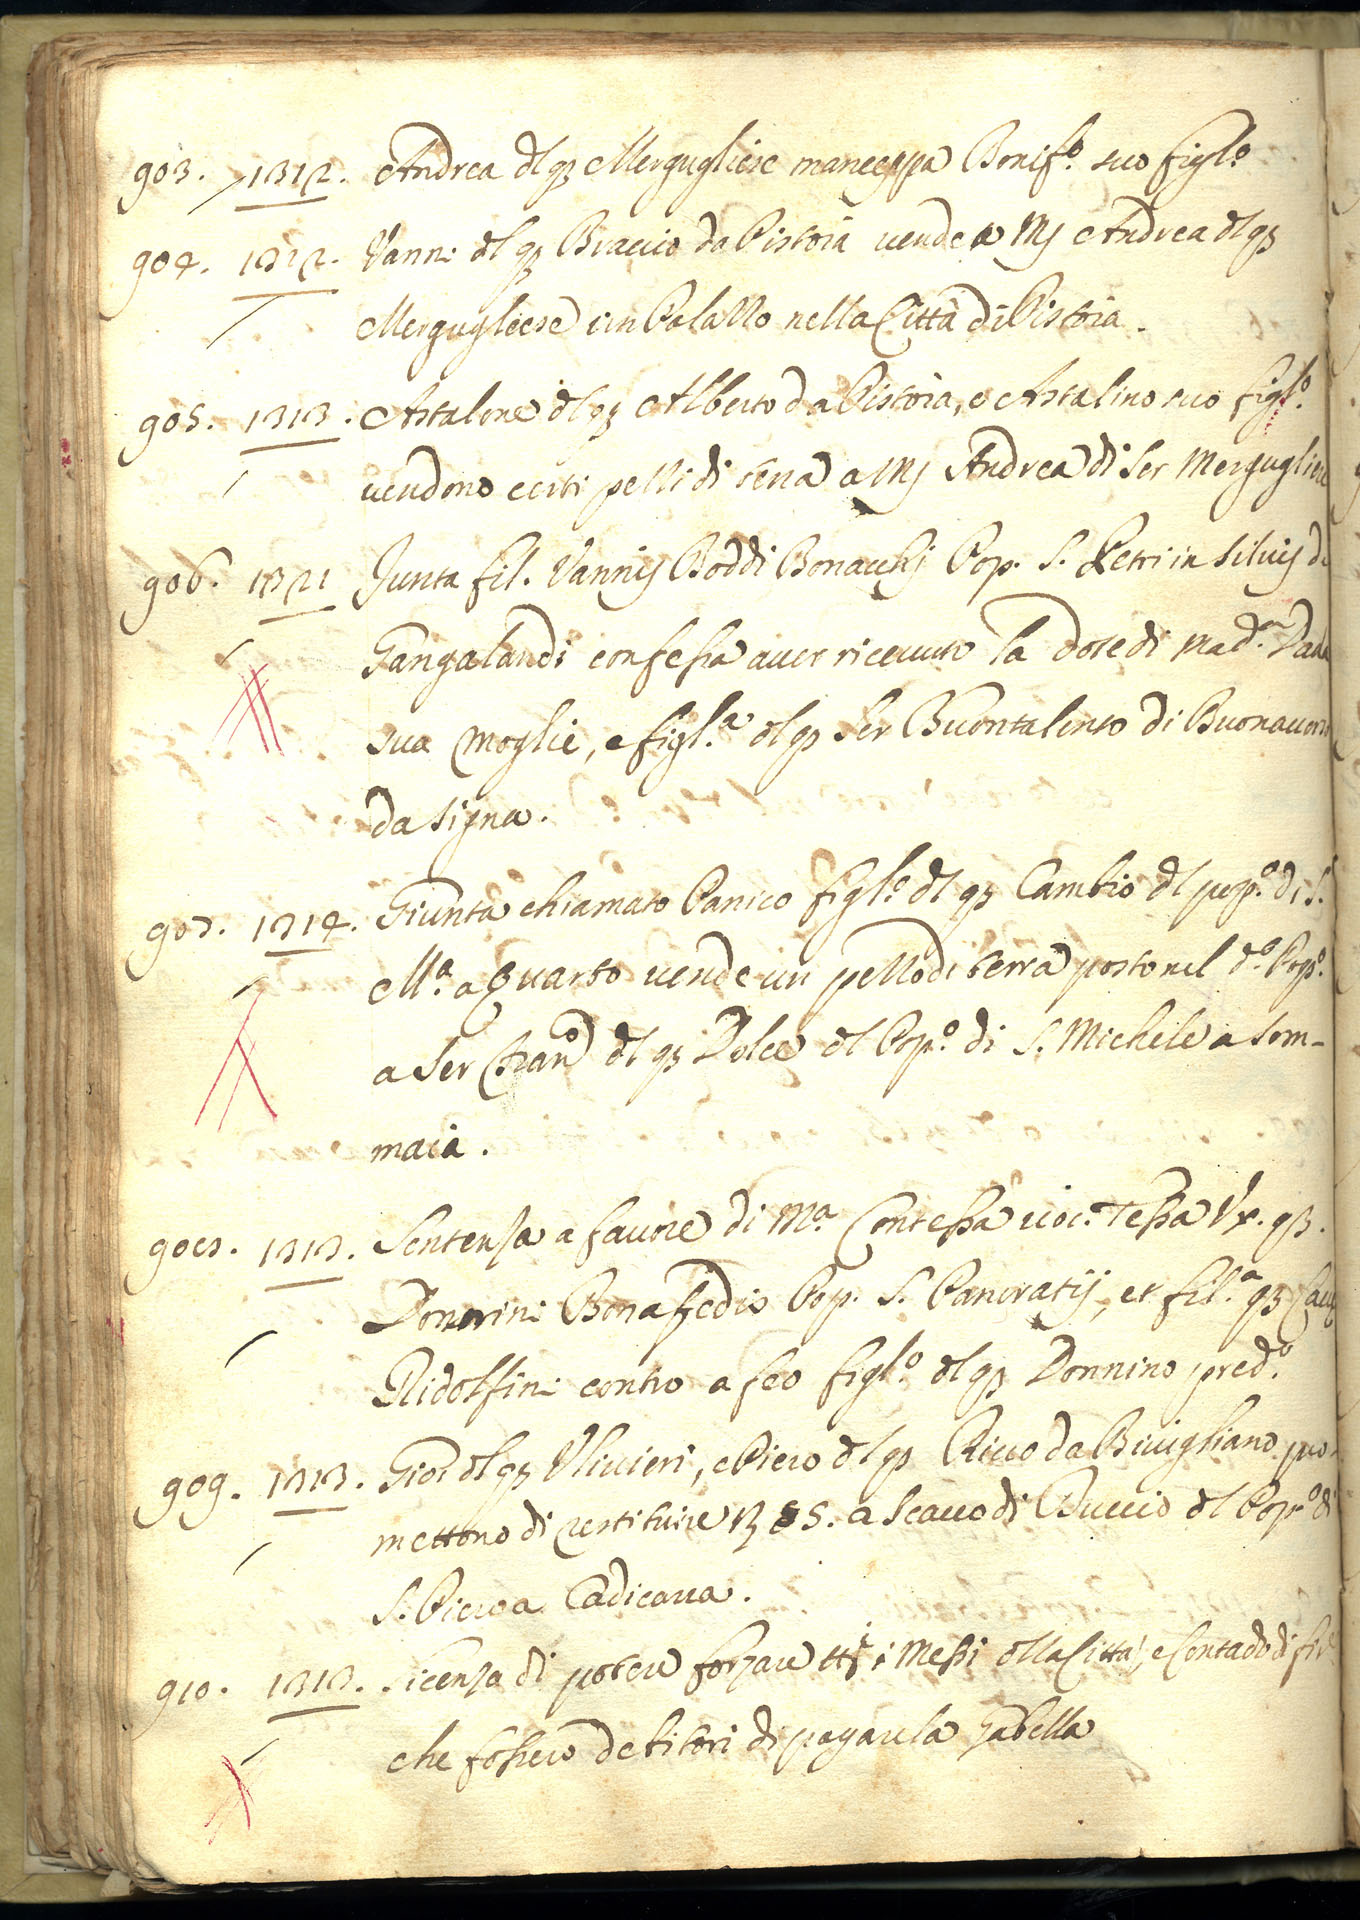 903. 1312. Andrea dl qz Mergugliese maneeppa Bonif.º suo figl.º
904. 1312. Vanni dl qz Braccio da Pistoia vende a Mſ Andrea dl qz
Mergugliese un Palazzo nella Città di Pistoia.
905. 1313. Astalone dl qz Alberto da Pistoia, e Astalino suo figl.º
vendono certi pezzi di terra a Mſ Andrea di Ser Mergugliese
906. 1321 Junta fil. Vannis Boddi Bonacchj Pop. S. Petri in Silvis di
Gangalandi confessa aver ricevuto la dote di Mad.ª
sua moglie, e figl.ª dl qz Ser Buontalento di Buonavent
da Signa.
907. 1314. Giunta chiamato Panico figl.º dl qz Cambio dl pop.º di S.
M.ª a Quarto vende un pezzo di terra posto nel d.º Pop.º
a Ser dl qz Dolce dl Pop.º di S. Michele a Som-
maia.
908. 1313. Sentenza a favore di M.ª Contessa vioc. Tessa Ux. qz.
Donnini Bonafedis Pop. S. Pancratij, et fil.ª qz
Ridolfini contro a feo figl.º dl qz Donnino pred.º
909. 1313. Gio: dl qz Ulivieri, e Piero dl qz Ricco da Bivigliano pro-
mettono di restituire a Scacco di Duccio dl Pop.º di
S. Piero a Cadicava.
910. 1313. Licenza di potere forzare tti i Messi dlla Città, e Contado di fir
che fossero debitori di pagare la Gabella